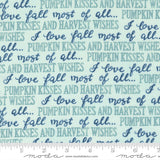 all... I love fall most of all...
PUMPKIN KISSES AND HARVEST WISHES
I love fall most of all...
HARVEST WISHES PUMPKIN KISSES AND
most of all... I love fall most
PUMPKIN KISSES AND HARVEST WISHES
I love fall most of all...
HARVEST WISHES PUMPKIN KISSES AND
of all... I love fall most of
KISSES AND HARVEST WISHES
moda